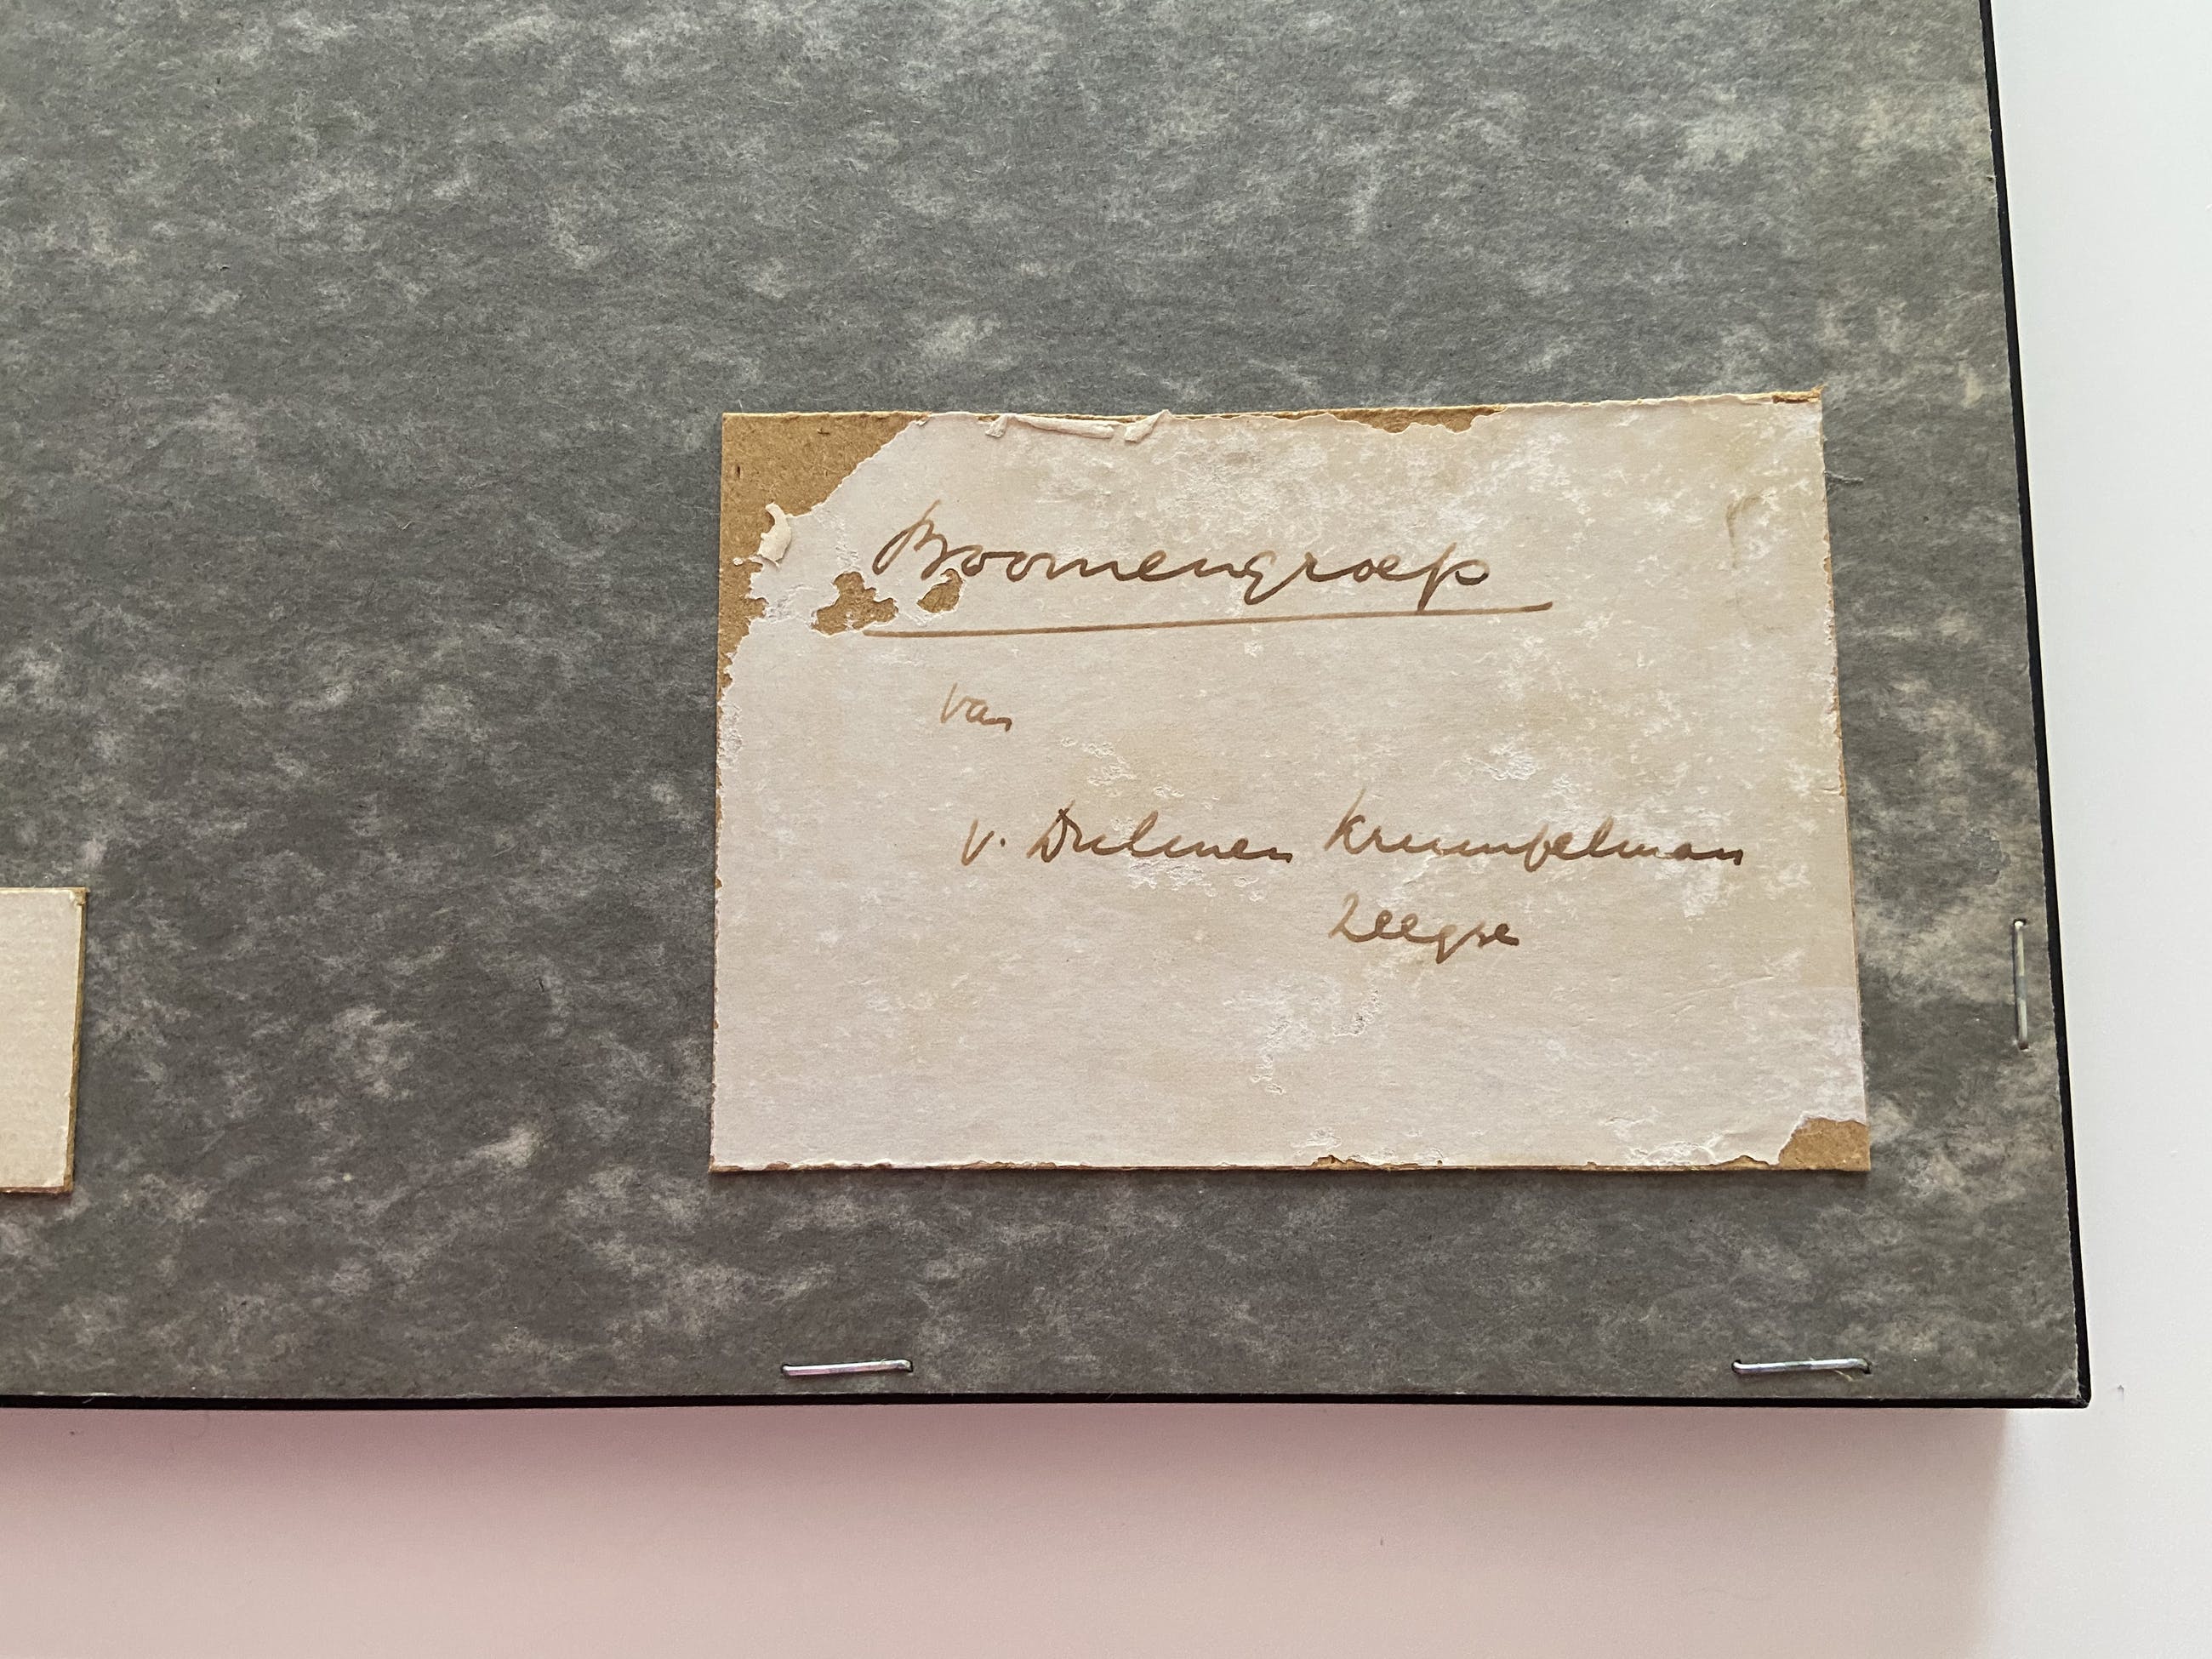 Boomengroep
van
v. Dulmen Krumpelman
Zeegse